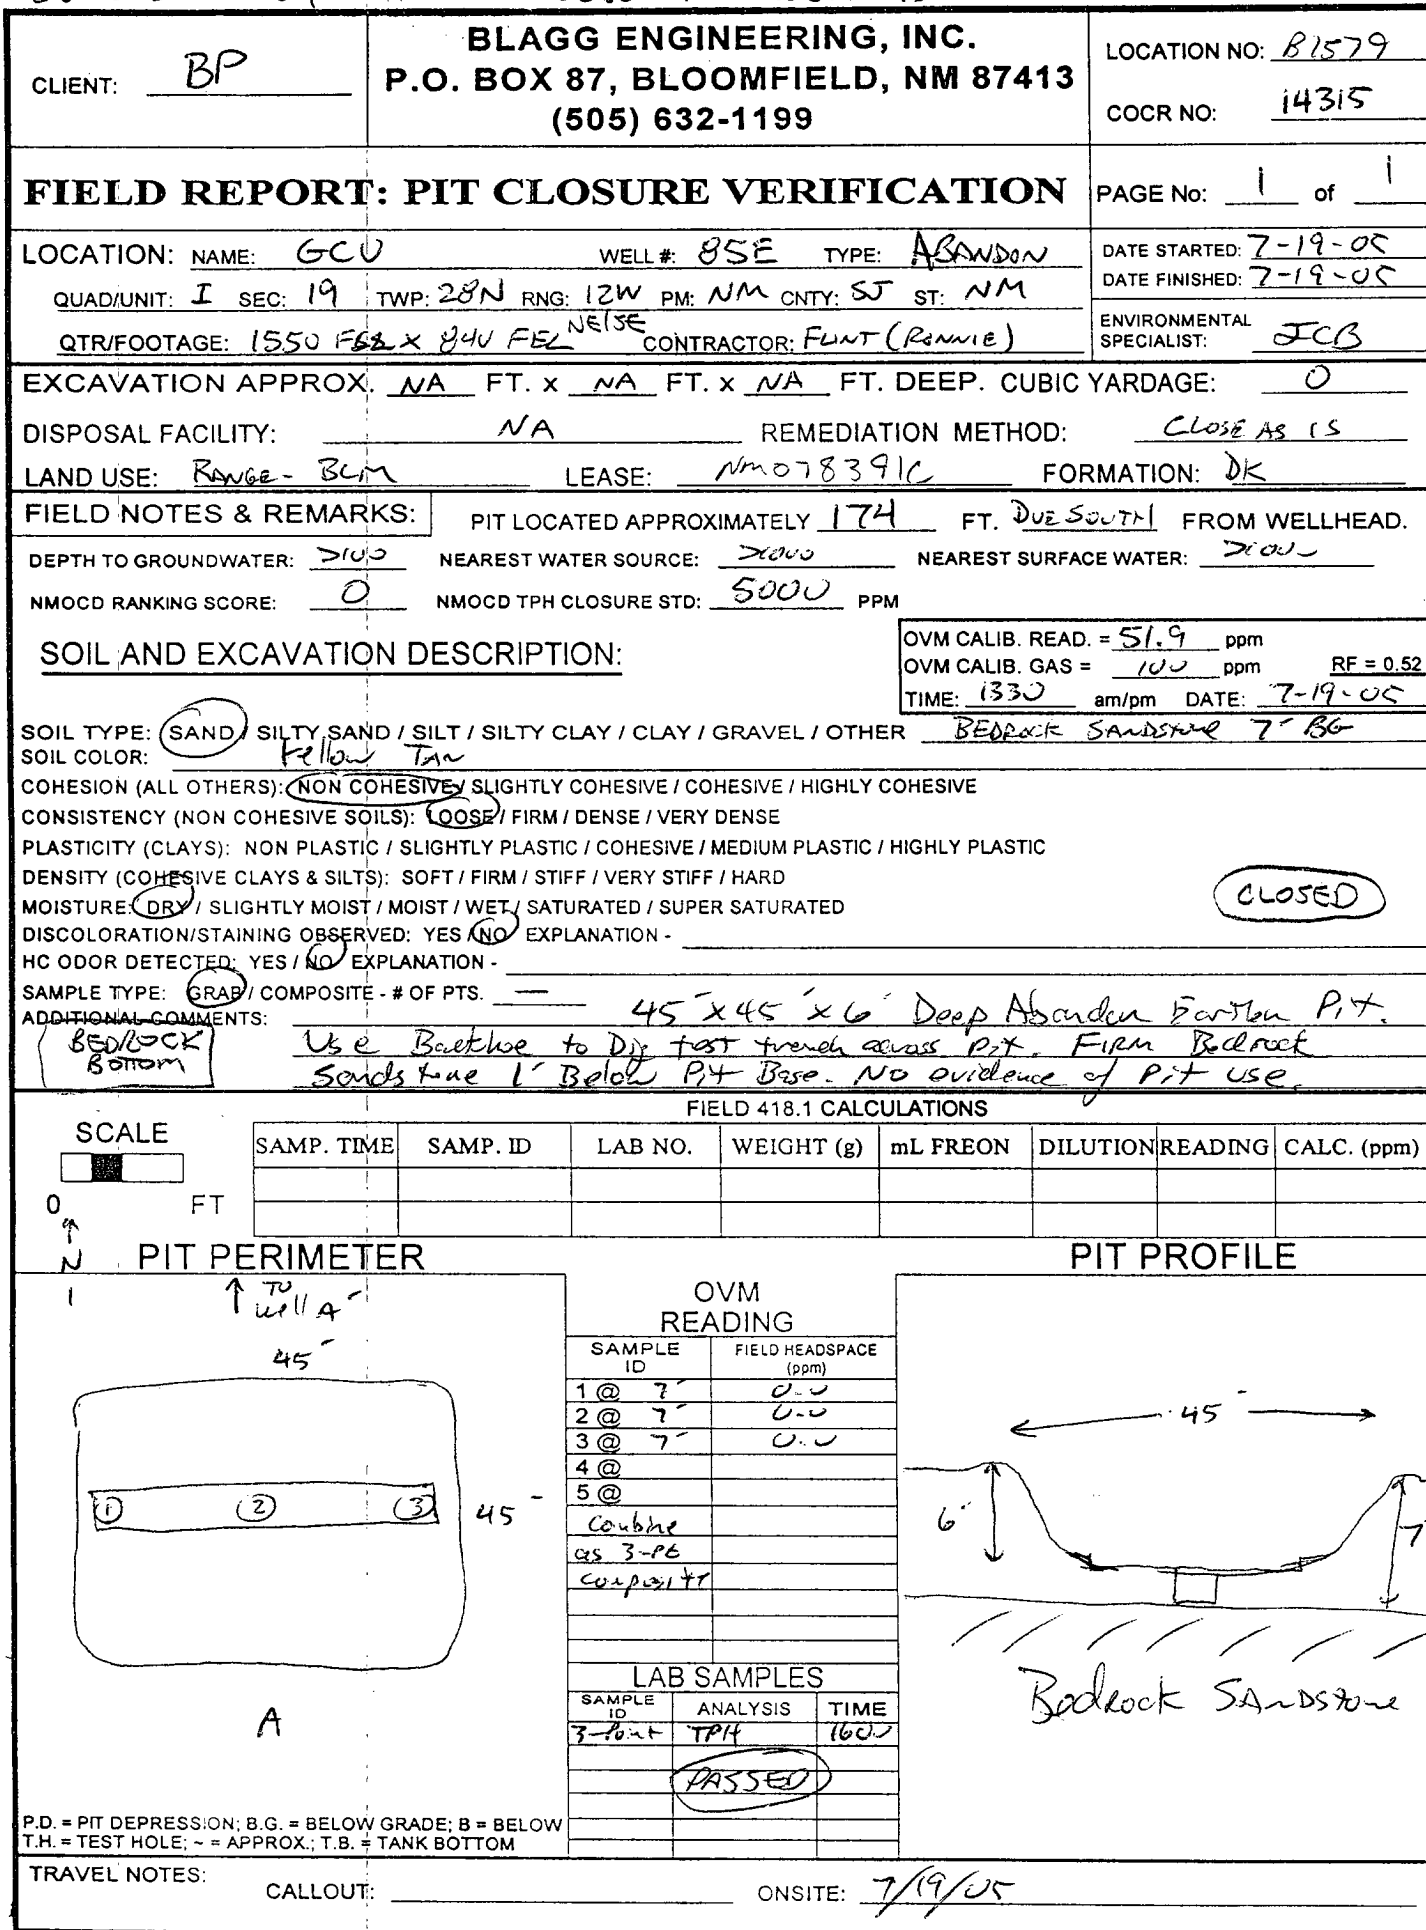 CLIENT: BP
BLAGG ENGINEERING, INC.
P.O. BOX 87, BLOOMFIELD, NM 87413
(505) 632-1199
LOCATION NO: B1579
COCR NO: 14315
FIELD REPORT: PIT CLOSURE VERIFICATION
PAGE No: 1 of 1
LOCATION: NAME: GCU WELL #: 85E TYPE: ABANDON
QUAD/UNIT: I SEC: 19 TWP: 28N RNG: 12W PM: NM CNTY: SJ ST: NM
QTR/FOOTAGE: 1550 FSL x 840 FEL NE/SE CONTRACTOR: FLINT (RONNIE)
DATE STARTED: 7-19-05
DATE FINISHED: 7-19-05
ENVIRONMENTAL
SPECIALIST: JCB
EXCAVATION APPROX. NA FT. x NA FT. x NA FT. DEEP. CUBIC YARDAGE: 0
DISPOSAL FACILITY: NA REMEDIATION METHOD: CLOSE AS IS
LAND USE: RANGE - BLM LEASE: NM078391C FORMATION: DK
FIELD NOTES & REMARKS: PIT LOCATED APPROXIMATELY 174 FT. DUE SOUTH FROM WELLHEAD.
DEPTH TO GROUNDWATER: >100 NEAREST WATER SOURCE: >1000 NEAREST SURFACE WATER: >1000
NMOCD RANKING SCORE: 0 NMOCD TPH CLOSURE STD: 5000 PPM
SOIL AND EXCAVATION DESCRIPTION:
OVM CALIB. READ. = 51.9 ppm
OVM CALIB. GAS = 100 ppm RF = 0.52
TIME: 1330 am/pm DATE: 7-19-05
SOIL TYPE: SAND / SILTY SAND / SILT / SILTY CLAY / CLAY / GRAVEL / OTHER BEDROCK SANDSTONE 7' BG
SOIL COLOR: Yellow TAN
COHESION (ALL OTHERS): NON COHESIVE / SLIGHTLY COHESIVE / COHESIVE / HIGHLY COHESIVE
CONSISTENCY (NON COHESIVE SOILS): LOOSE / FIRM / DENSE / VERY DENSE
PLASTICITY (CLAYS): NON PLASTIC / SLIGHTLY PLASTIC / COHESIVE / MEDIUM PLASTIC / HIGHLY PLASTIC
DENSITY (COHESIVE CLAYS & SILTS): SOFT / FIRM / STIFF / VERY STIFF / HARD
MOISTURE: DRY / SLIGHTLY MOIST / MOIST / WET / SATURATED / SUPER SATURATED
CLOSED
DISCOLORATION/STAINING OBSERVED: YES / NO EXPLANATION -
HC ODOR DETECTED: YES / NO EXPLANATION -
SAMPLE TYPE: GRAB / COMPOSITE - # OF PTS. —
ADDITIONAL COMMENTS: 45' x 45' x 6' Deep Abandon Earthen Pit.
BEDROCK
BOTTOM
Use Backhoe to Dig test trench across pit. FIRM Bedrock
Sandstone 1' Below Pit Base. No evidence of Pit use.
FIELD 418.1 CALCULATIONS
SCALE
0 FT
SAMP. TIME SAMP. ID LAB NO. WEIGHT (g) mL FREON DILUTION READING CALC. (ppm)
N
PIT PERIMETER
PIT PROFILE
TO
well A
45'
45'
1 2 3
A
OVM
READING
SAMPLE ID FIELD HEADSPACE (ppm)
1 @ 7' 0.0
2 @ 7' 0.0
3 @ 7' 0.0
4 @
5 @
Combine
as 3-pt
composite
LAB SAMPLES
SAMPLE ID ANALYSIS TIME
3-Point TPH 1600
PASSED
45'
6'
7'
Bedrock SANDSTONE
P.D. = PIT DEPRESSION; B.G. = BELOW GRADE; B = BELOW
T.H. = TEST HOLE; ~ = APPROX.; T.B. = TANK BOTTOM
TRAVEL NOTES: CALLOUT: ONSITE: 7/19/05